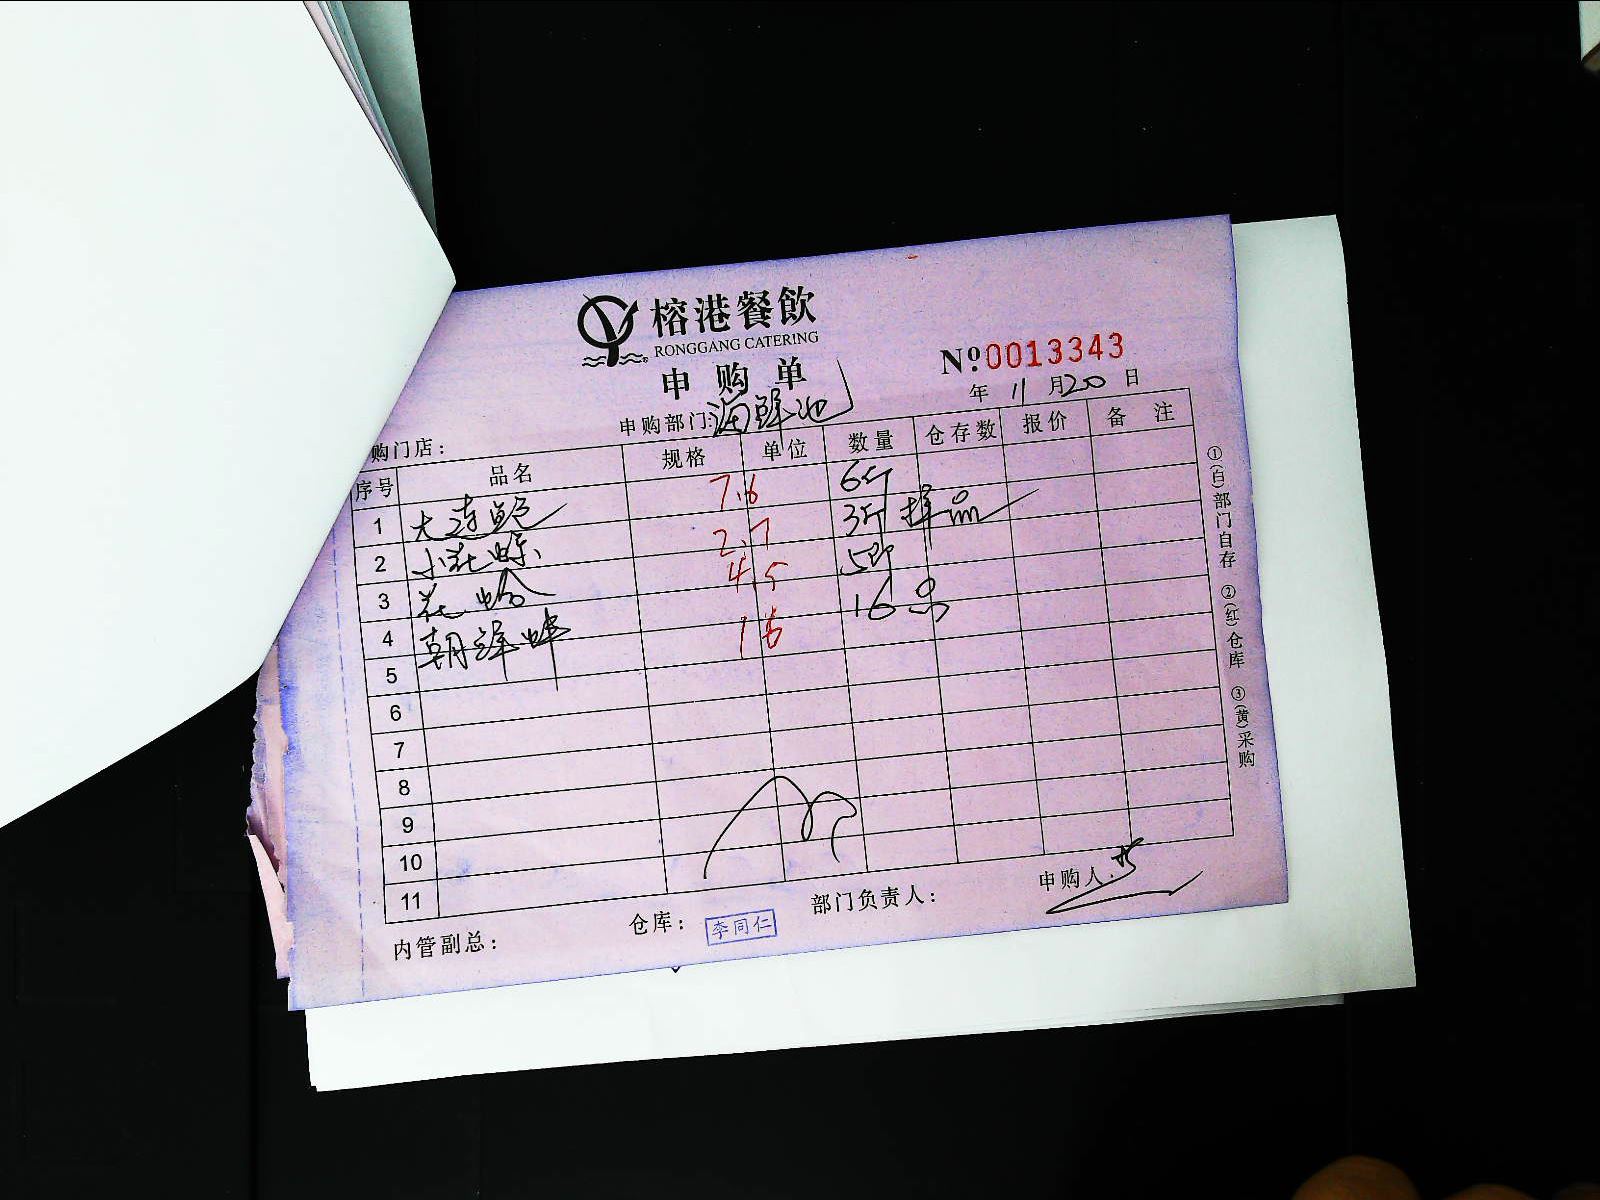 榕港餐飲
RONGGANG CATERING
申购单
№0013343
年 11 月 20 日
购门店：
申购部门：海鲜池
序号 品名 规格 单位 数量 仓存数 报价 备注
1 大连鲍 7.6 6斤
2 小花螺 2.7 3斤 样品
3 花蛤 4.5 5斤
4 朝鲜蚌 16 16
5
6
7
8
9
10
11
内管副总：
仓库： 李同仁
部门负责人：
申购人：
①(白)部门自存 ②(红)仓库 ③(黄)采购